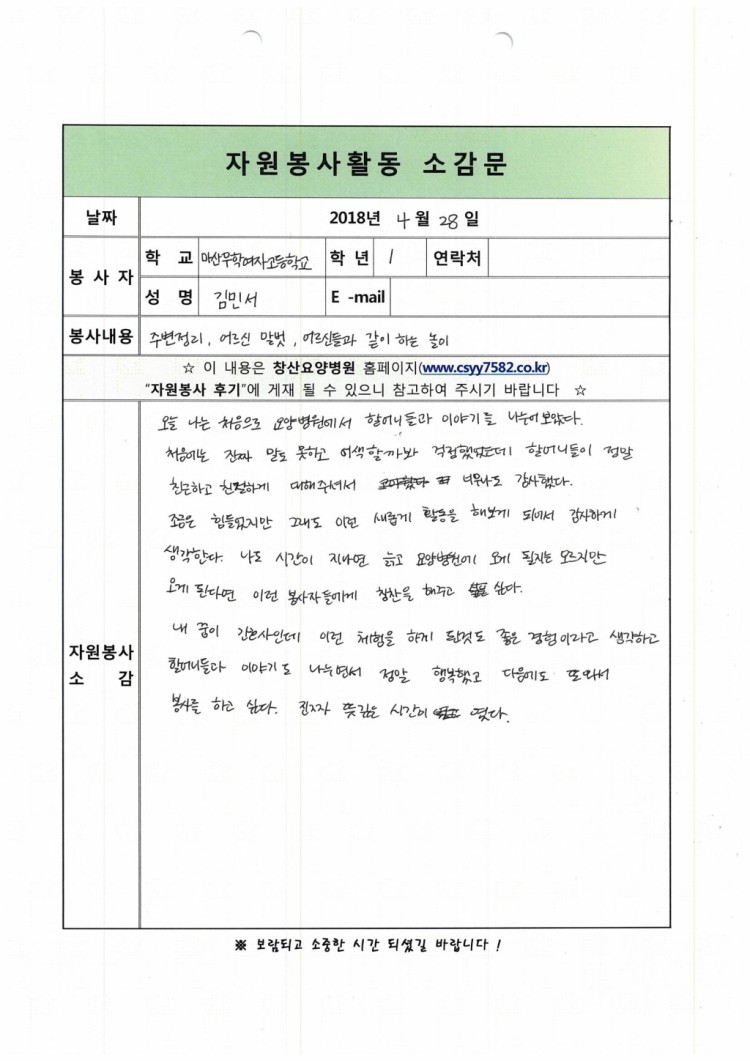 자원봉사활동 소감문
날짜 2018년 4월 28일
봉사자 학교 마산무학여자고등학교 학년 1 연락처
성명 김민서 E-mail
봉사내용 주변정리, 어르신 말벗, 어르신들과 같이 하는 놀이
☆ 이 내용은 창산요양병원 홈페이지(www.csyy7582.co.kr)
"자원봉사 후기"에 게재 될 수 있으니 참고하여 주시기 바랍니다 ☆
자원봉사 소감
오늘 나는 처음으로 요양병원에서 할머니들과 이야기를 나누어 보았다.
처음에는 진짜 말도 못하고 어색할까봐 걱정했었는데 할머니들이 정말
친근하고 친절하게 대해주셔서 너무나도 감사했다.
조금은 힘들었지만 그래도 이런 새롭게 활동을 해보게 되어서 감사하게
생각한다. 나도 시간이 지나면 늙고 요양병원에 오게 될지는 모르지만
오게 된다면 이런 봉사자들에게 칭찬을 해주고 싶다.
내 꿈이 간호사인데 이런 체험을 하게 된것도 좋은 경험이라고 생각하고
할머니들과 이야기도 나누면서 정말 행복했고 다음에도 또 와서
봉사를 하고 싶다. 진짜 뜻깊은 시간이 였다.
※ 보람되고 소중한 시간 되셨길 바랍니다 !